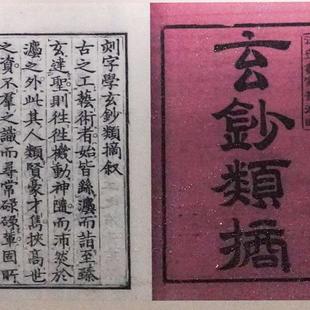 玄鈔類摘
刻字學玄鈔類摘叙
古之工藝術者始皆繇灋而詣至臻
玄達聖則徃徃機動神隨而沛然於
灋之外此其人類賢豪才雋挾高世
之資不羣之識而尋常碌碌軰固所